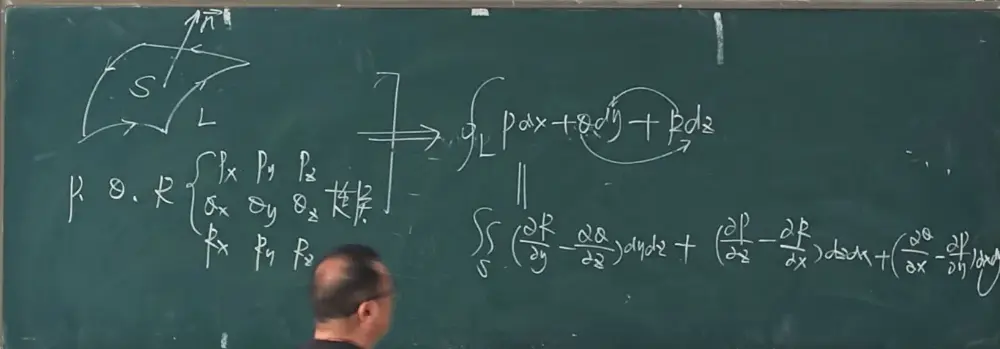 n⃗
S
L
P. Q. R { Px Py Pz
Qx Qy Qz 连续
Rx Ry Rz
⇒ ∮_L Pdx + Qdy + Rdz
||
∬_S (∂R/∂y − ∂Q/∂z)dydz + (∂P/∂z − ∂R/∂x)dzdx + (∂Q/∂x − ∂P/∂y)dxdy